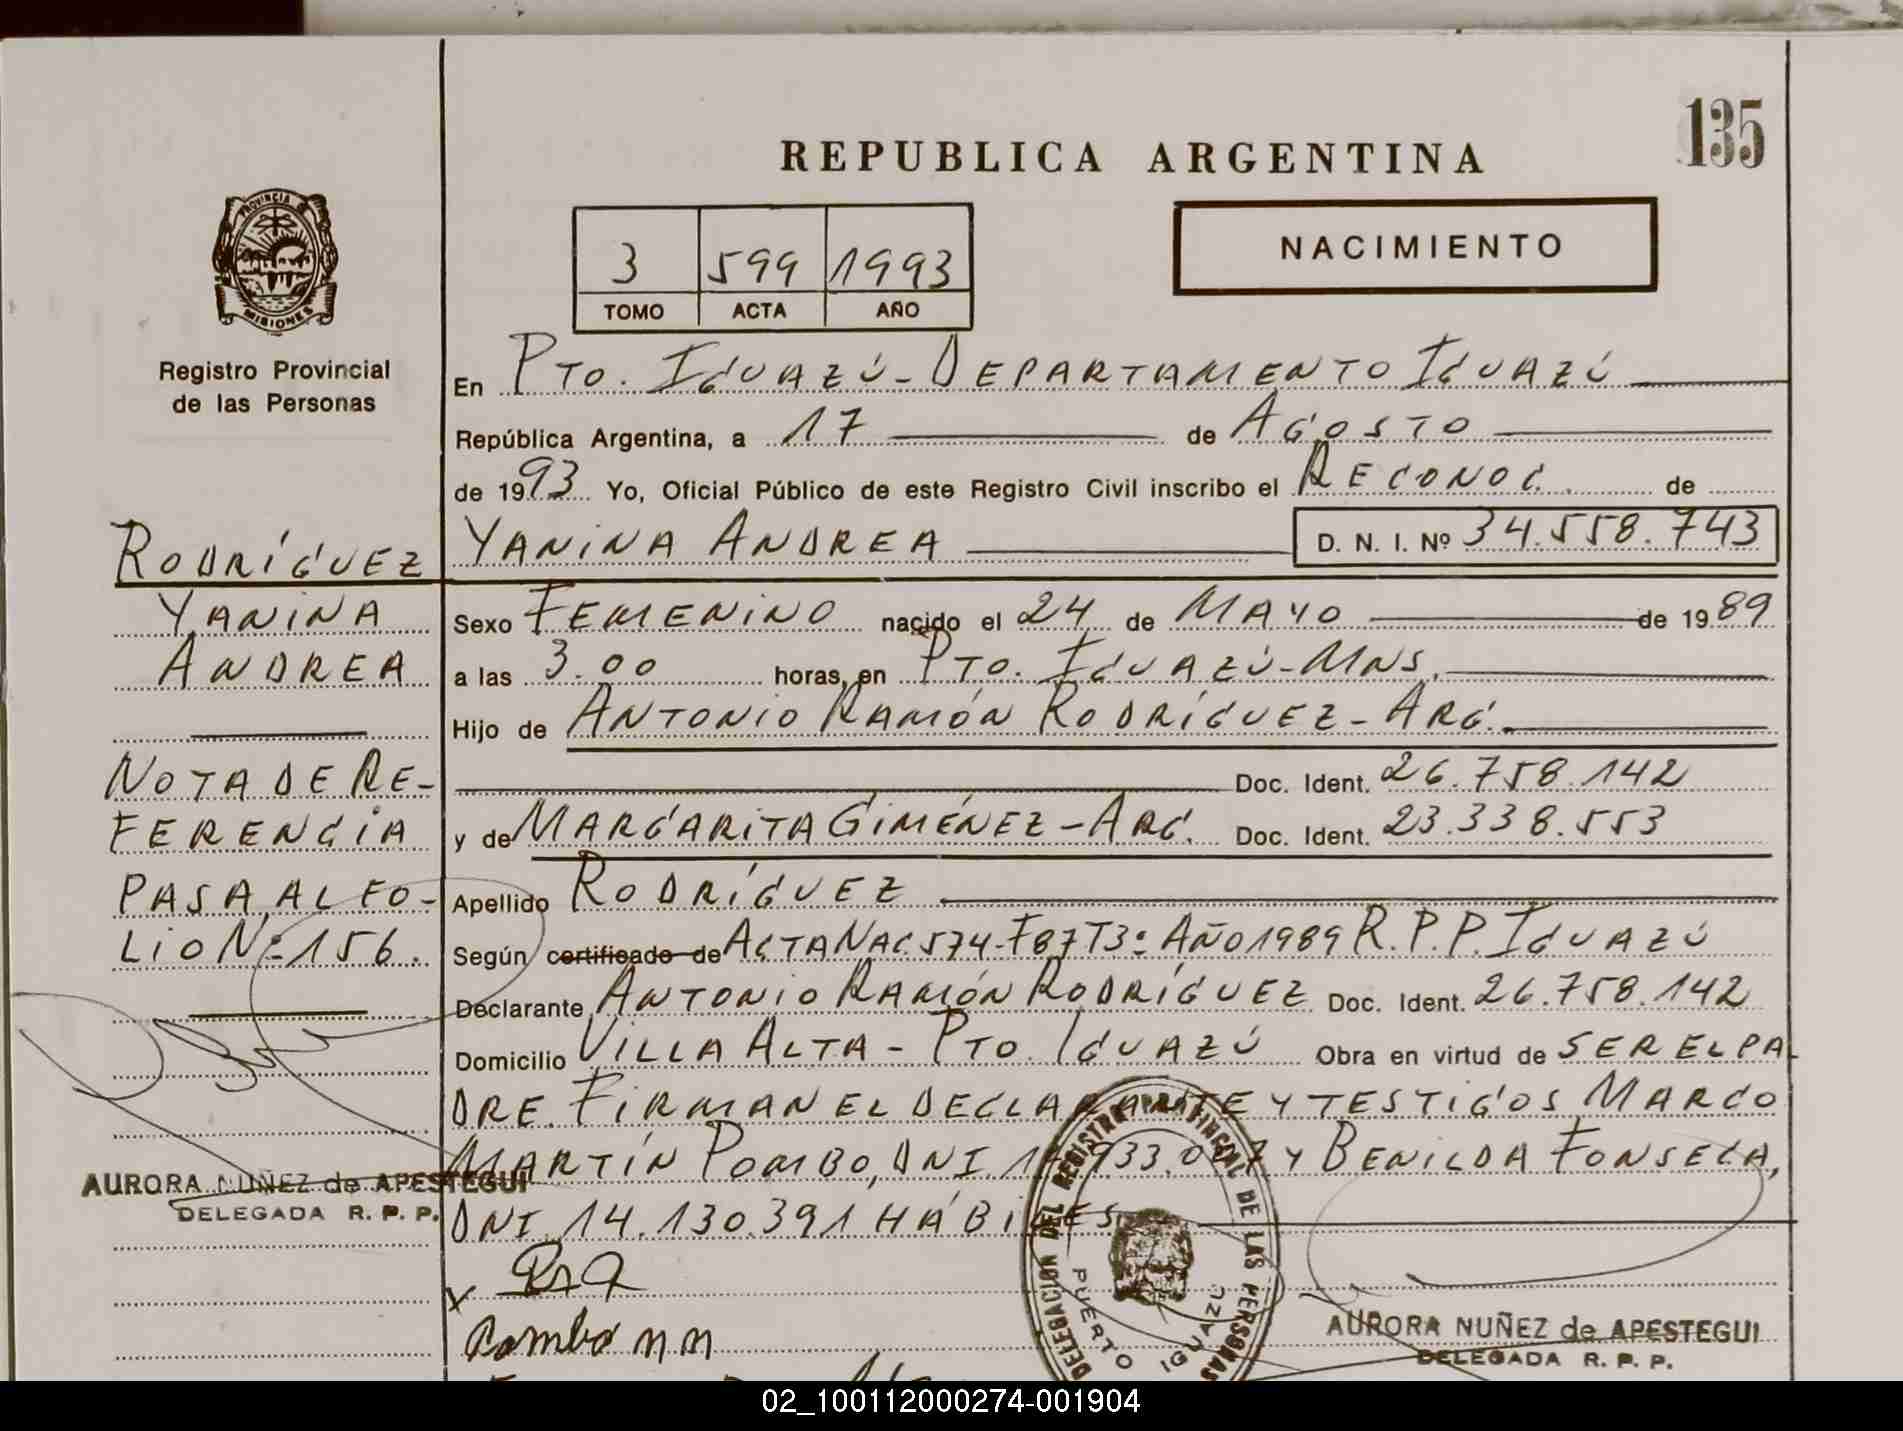 135
REPUBLICA ARGENTINA
PROVINCIA DE
MISIONES
Registro Provincial
de las Personas
3 599 1993
TOMO ACTA AÑO
NACIMIENTO
En PTO. IGUAZÚ - DEPARTAMENTO IGUAZÚ
República Argentina, a 17 de AGOSTO
de 1993 Yo, Oficial Público de este Registro Civil inscribo el RECONOC. de
YANINA ANDREA D. N. I. Nº 34.558.743
Sexo FEMENINO nacido el 24 de MAYO de 1989
a las 3.00 horas, en PTO. IGUAZÚ - MNS.
Hijo de ANTONIO RAMÓN RODRÍGUEZ - ARG.
Doc. Ident. 26.758.142
y de MARGARITA GIMÉNEZ - ARG. Doc. Ident. 23.338.553
Apellido RODRÍGUEZ
Según certificado de ACTA NAC 574-F87 T3º AÑO 1989 R.P.P. IGUAZÚ
Declarante ANTONIO RAMÓN RODRÍGUEZ Doc. Ident. 26.758.142
Domicilio VILLA ALTA - PTO. IGUAZÚ Obra en virtud de SER EL PA-
DRE. FIRMAN EL DECLARANTE Y TESTIGOS MARCO
MARTÍN POMBO, DNI Y BENILDA FONSECA,
DNI 14.130.391 HÁBILES
RODRÍGUEZ
YANINA
ANDREA
NOTA DE RE-
FERENCIA
PASA AL FO-
LIO Nº 156.
AURORA NUÑEZ de APESTEGUI
DELEGADA R. P. P.
X
Pombo M M
DELEGACION DEL REGISTRO PROVINCIAL DE LAS PERSONAS
PUERTO IGUAZU
AURORA NUÑEZ de APESTEGUI
DELEGADA R. P. P.
02_100112000274-001904